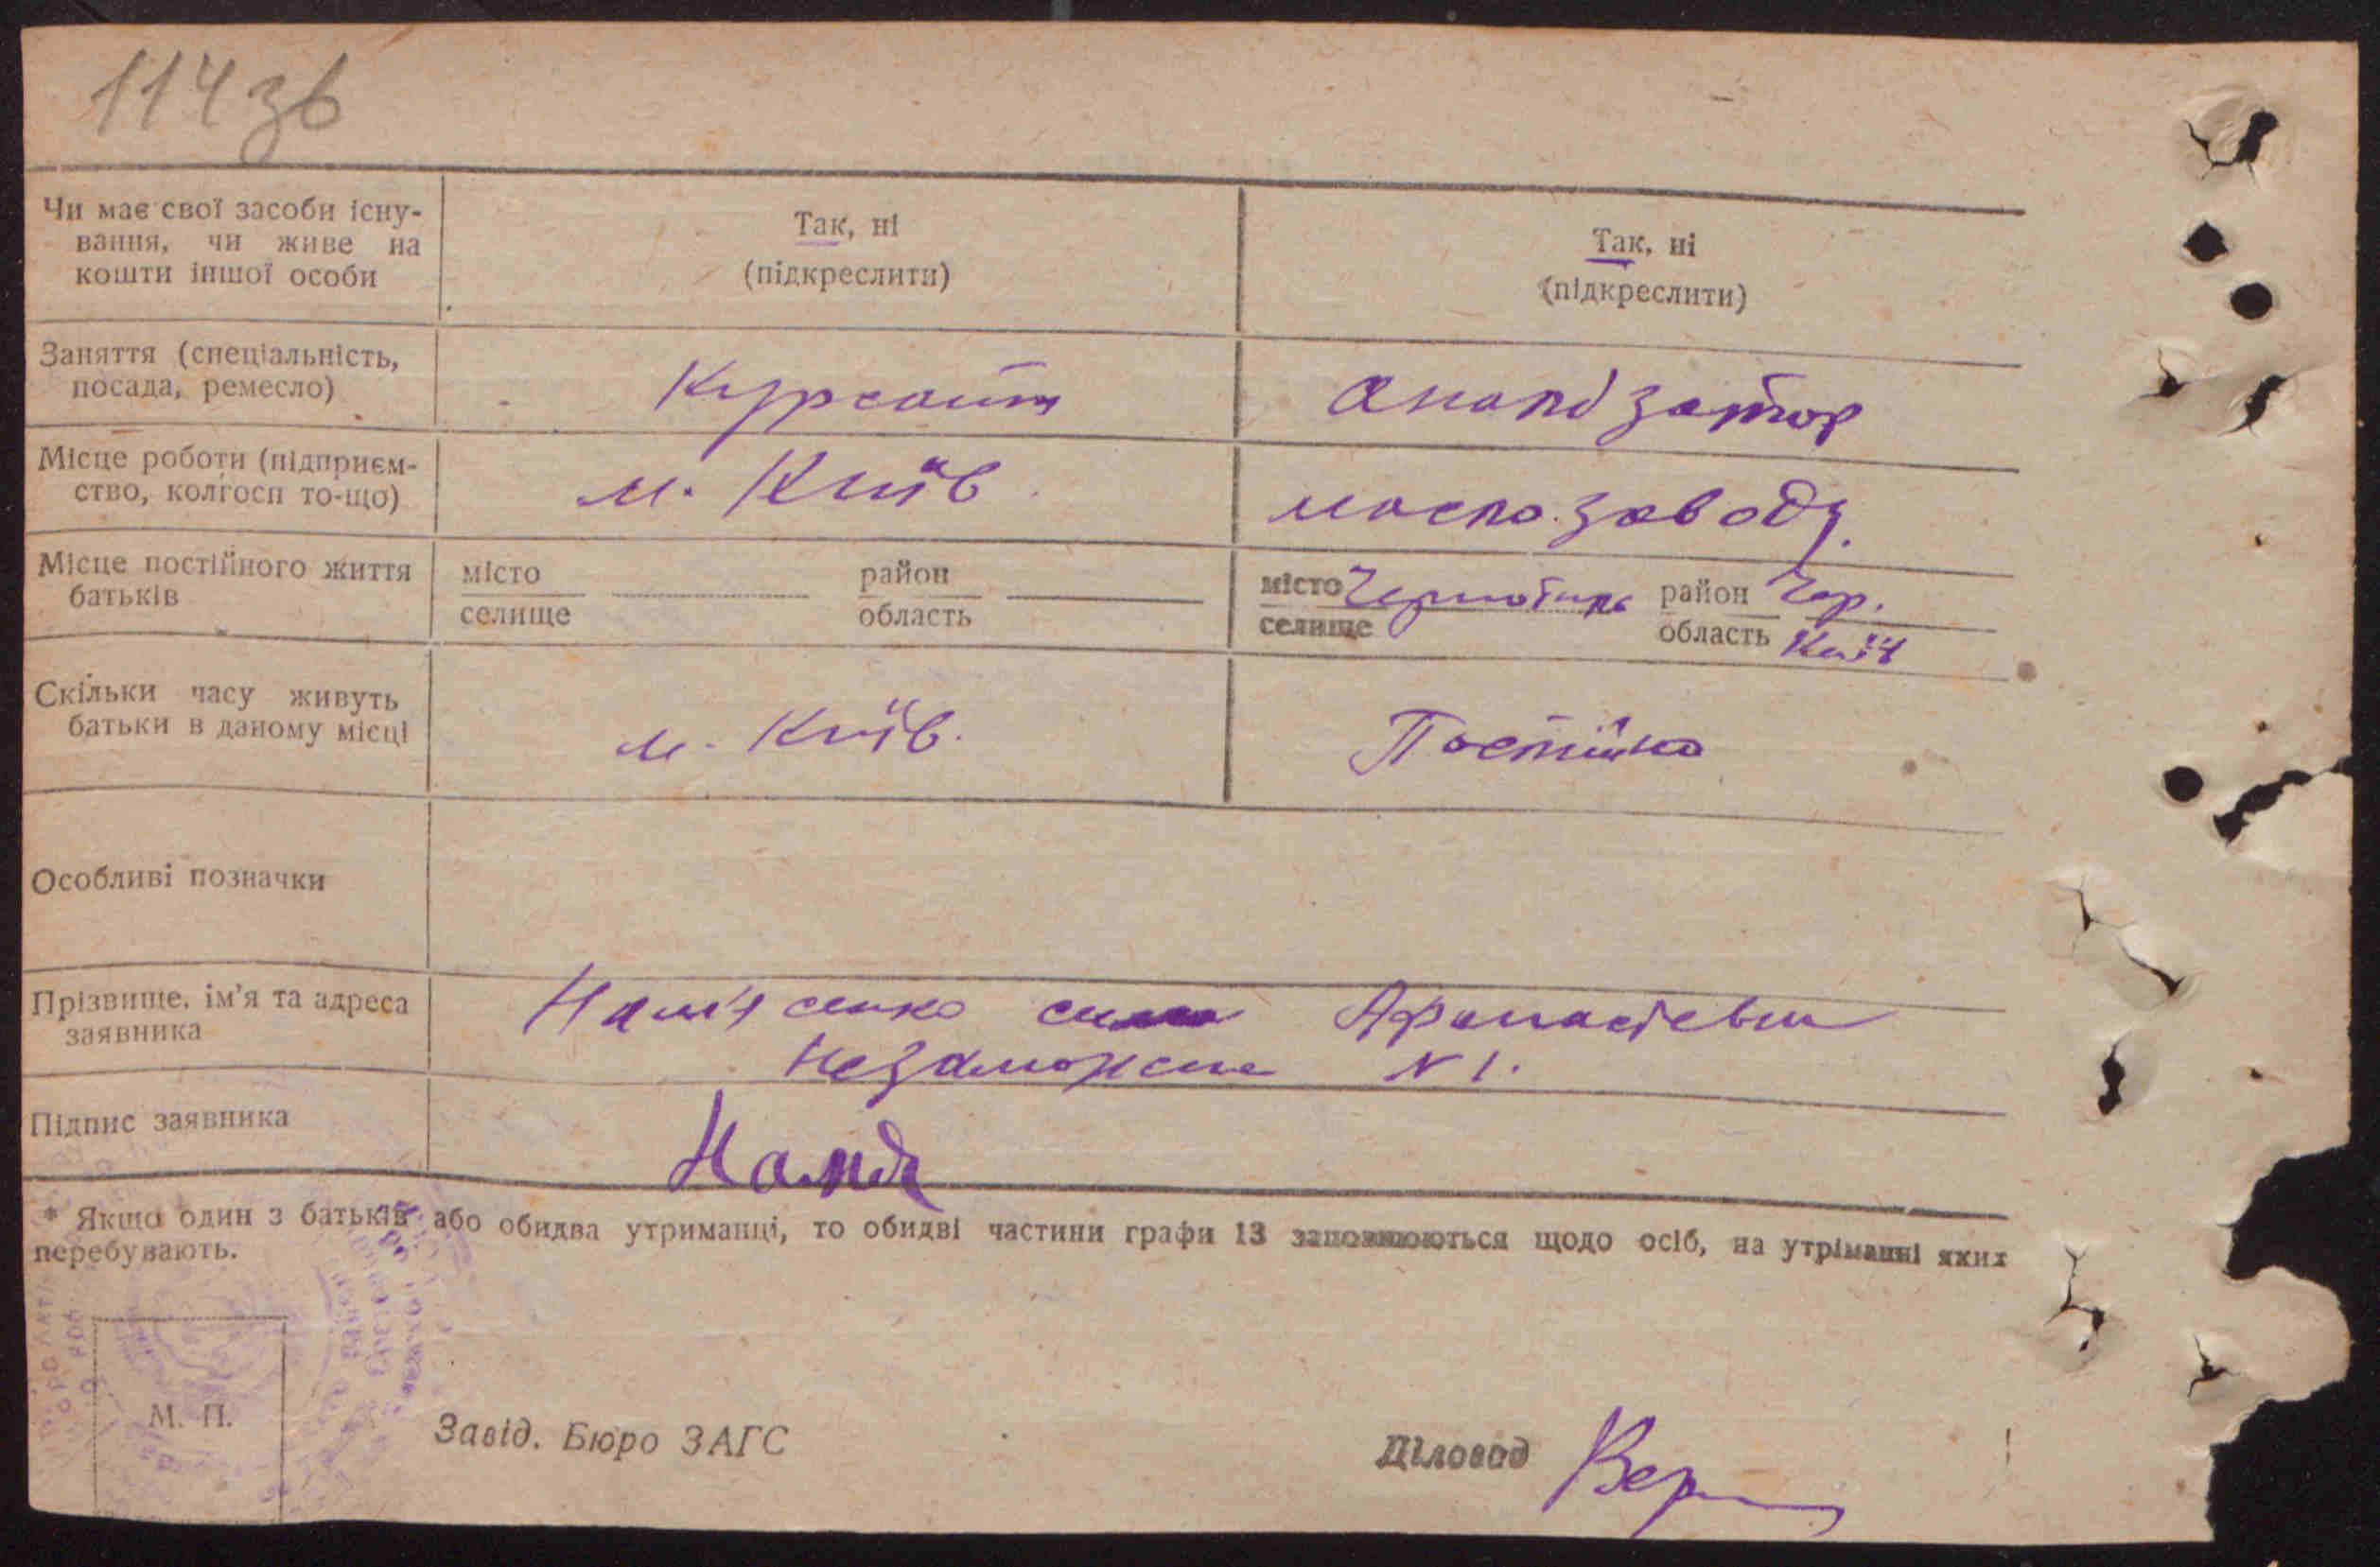 114зв
Чи має свої засоби існу-
вання, чи живе на
кошти іншої особи
Так, ні
(підкреслити)
Так, ні
(підкреслити)
Заняття (спеціальність,
посада, ремесло)
Курсант
Аналізатор
Місце роботи (підприєм-
ство, колгосп то-що)
м. Київ
маслозаводу.
Місце постійного життя
батьків
місто
селище
район
область
місто
селище
район Чор.
область Київ
Скільки часу живуть
батьки в даному місці
м. Київ.
Постійно
Особливі позначки
Прізвище, ім'я та адреса
заявника
Афанасієвна
Незаможна № 1.
Підпис заявника
* Якщо один з батьків або обидва утриманці, то обидві частини графи 13 заповнюються щодо осіб, на утріманні яких
перебувають.
М. П.
Завід. Бюро ЗАГС
Діловод